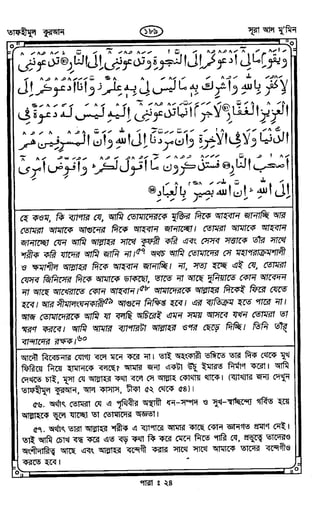 তাফহীমুল কুরআন
১৮৯
সূরা আল মু'মিন
وَيٰقَوْمِ مَا لِىْٓ اَدْعُوْكُمْ اِلَى النَّجٰوةِ وَتَدْعُوْنَنِىْٓ اِلَى النَّارِ۝ تَدْعُوْنَنِىْ
لِاَكْفُرَ بِاللّٰهِ وَاُشْرِكَ بِهٖ مَا لَيْسَ لِىْ بِهٖ عِلْمٌ ز وَّاَنَا اَدْعُوْكُمْ اِلَى
الْعَزِيْزِ الْغَفَّارِ۝ لَاجَرَمَ اَنَّمَا تَدْعُوْنَنِىْٓ اِلَيْهِ لَيْسَ لَهٗ دَعْوَةٌ فِى
الدُّنْيَا وَلَا فِى الْاٰخِرَةِ وَاَنَّ مَرَدَّنَآ اِلَى اللّٰهِ وَاَنَّ الْمُسْرِفِيْنَ هُمْ
اَصْحٰبُ النَّارِ۝ فَسَتَذْكُرُوْنَ مَآ اَقُوْلُ لَكُمْ ط وَاُفَوِّضُ اَمْرِىْٓ
اِلَى اللّٰهِ ط اِنَّ اللّٰهَ بَصِيْرٌۢ بِالْعِبَادِ۝
হে কওম, কি ব্যাপার যে, আমি তোমাদেরকে মুক্তির দিকে আহবান জানাচ্ছি আর
তোমরা আমাকে আগুনের দিকে আহবান জানাচ্ছো। তোমরা আমাকে আহবান
জানাচ্ছো যেন আমি আল্লাহর সাথে কুফরী করি এবং সেসব সত্তাকে তাঁর সাথে
শরীক করি যাদের আমি জানি না।৫৭ অথচ আমি তোমাদের সে মহাপরাক্রমশালী
ও ক্ষমাশীল আল্লাহর দিকে আহবান জানাচ্ছি। না, সত্য হচ্ছে এই যে, তোমরা
যেসব জিনিসের দিকে আমাকে ডাকছো, তাতে না আছে দুনিয়াতে কোন আবেদন
না আছে আখেরাতে কোন আহবান।৫৮ আমাদেরকে আল্লাহর দিকেই ফিরে যেতে
হবে। আর সীমালংঘনকারী৫৯ আগুনে নিক্ষিপ্ত হবে। এর ব্যতিক্রম হতে পারে না।
আজ তোমাদেরকে আমি যা বলছি অচিরেই এমন সময় আসবে যখন তোমরা তা
স্মরণ করবে। আমি আমার ব্যাপারটা আল্লাহর ওপর ছেড়ে দিচ্ছি। তিনি তাঁর
বান্দাদের রক্ষক।৬০
আদৌ বিবেচনার যোগ্য বলে মনে করে না। তাই অহংকারী ভঙ্গিতে তার দিক থেকে মুখ
ফিরিয়ে নিয়ে হামানকে বলছে। আমার জন্য একটা উঁচু ইমারত নির্মাণ করো। আমি
দেখতে চাই, মূসা যে আল্লাহর কথা বলে সে আল্লাহ কোথায় থাকে। (ব্যাখ্যার জন্য দেখুন
তাফহীমুল কুরআন, আল কাসাস, টীকা ৫২ থেকে ৫৪)।
৫৬. অর্থাৎ তোমরা যে এ পৃথিবীর অস্থায়ী ধন-সম্পদ ও সুখ-স্বাচ্ছন্দ্যে গর্বিত হয়ে
আল্লাহকে ভুলে যাচ্ছো তা তোমাদের অজ্ঞতা।
৫৭. অর্থাৎ তারা আল্লাহর শরীক এ ব্যাপারে আমার কাছে কোন জ্ঞানগত প্রমাণ নেই।
তাই আমি চোখ বন্ধ করে এত বড় কথা কি করে মেনে নিতে পারি যে, প্রভুত্বে তাদেরও
অংশীদারিত্ব আছে এবং আল্লাহর বন্দেগী করার সাথে সাথে আমাকে তাদের বন্দেগীও
করতে হবে।
পারা ঃ ২৪